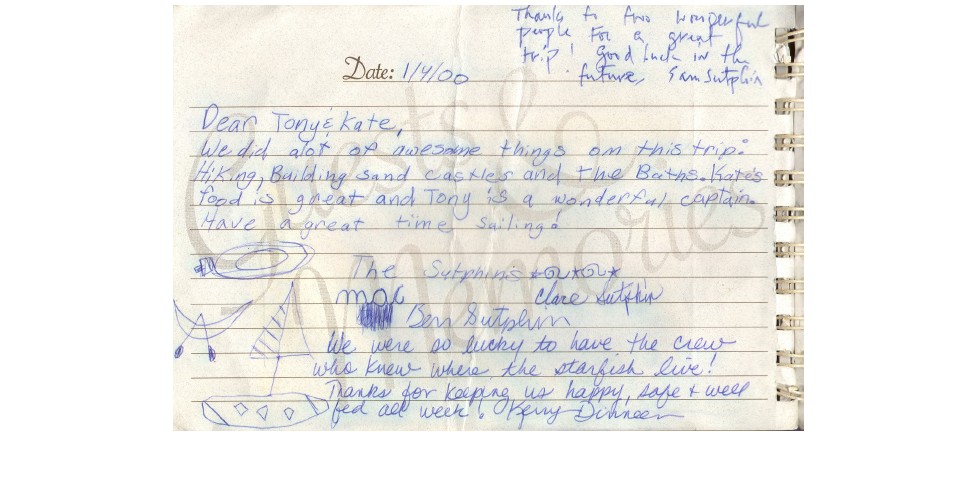 Thanks to two wonderful
people for a great
trip! Good luck in the
future, Sam Sutphin
Date: 1/4/00
Dear Tony & Kate,
We did alot of awesome things on this trip:
Hiking, Building sand castles and the Baths. Kate's
food is great and Tony is a wonderful captain.
Have a great time sailing!
The Sutphins
Clare Sutphin
Ben Sutphin
We were so lucky to have the crew
who knew where the starfish live!
Thanks for keeping us happy, safe + well
fed all week. Kerry Dinneen
Guests &
Memories